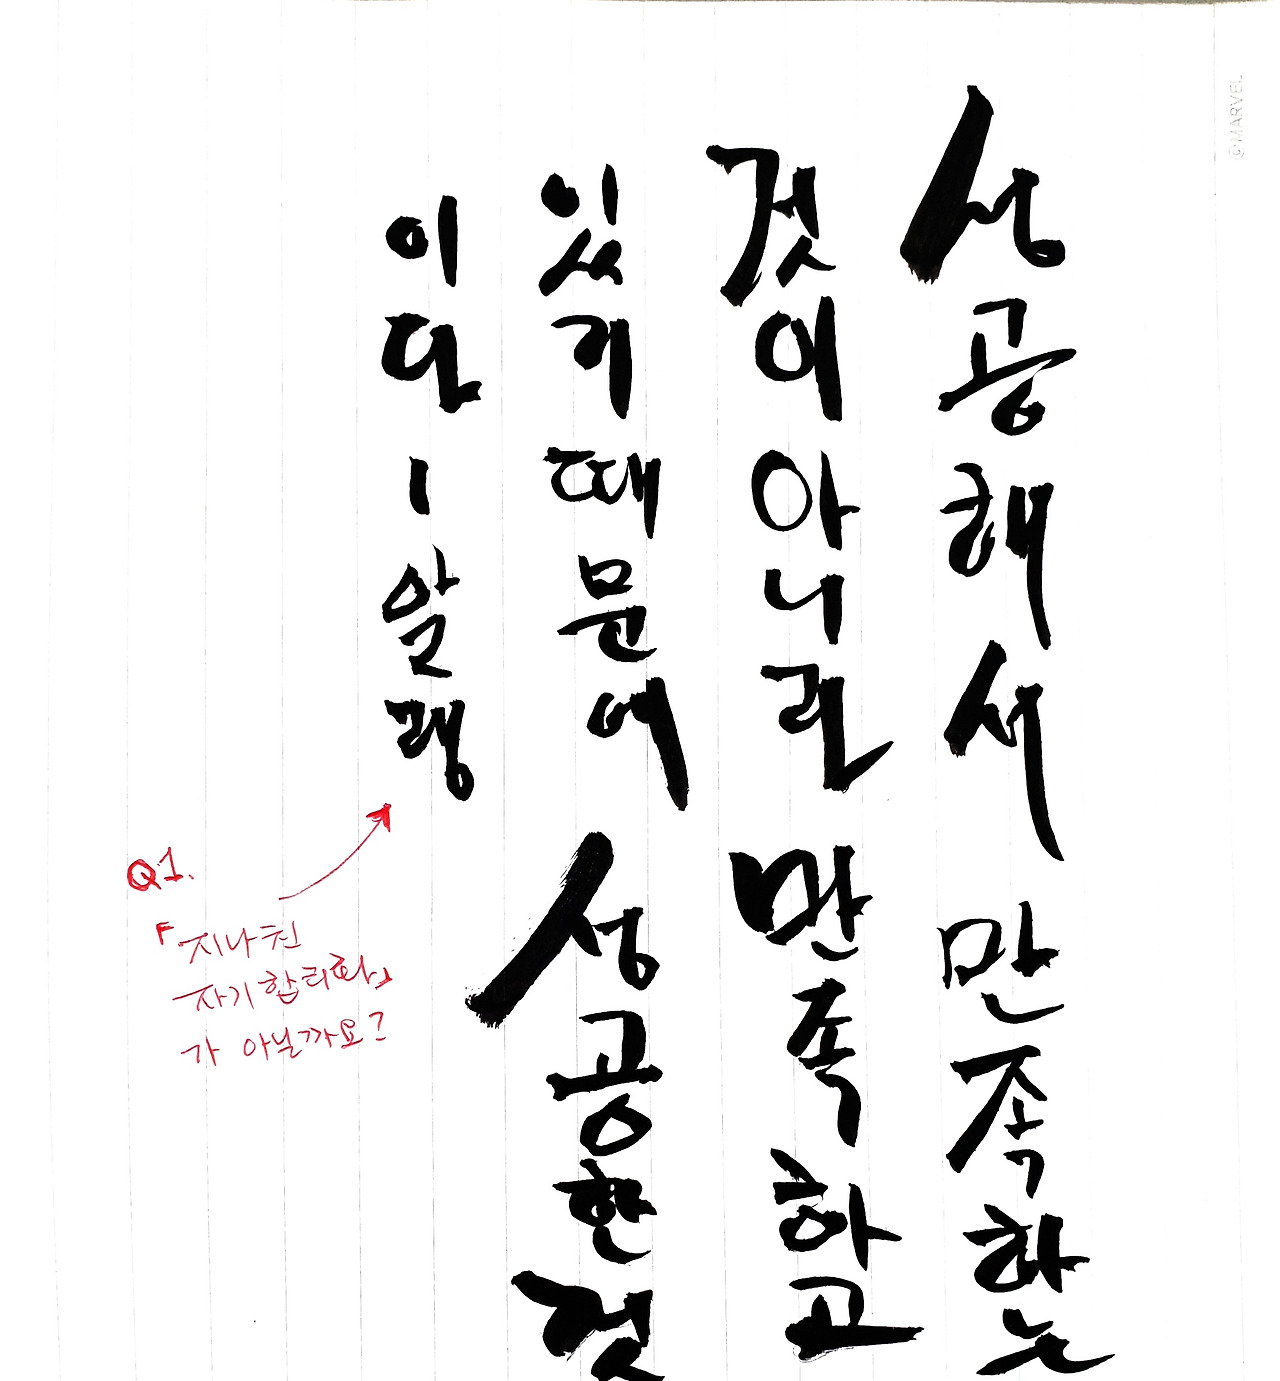 성공해서 만족하는
것이 아니라 만족하고
있기 때문에 성공한 것
이다 - 알랭
Q1.
「지나친
자기합리화」
가 아닐까요?
@MARVEL